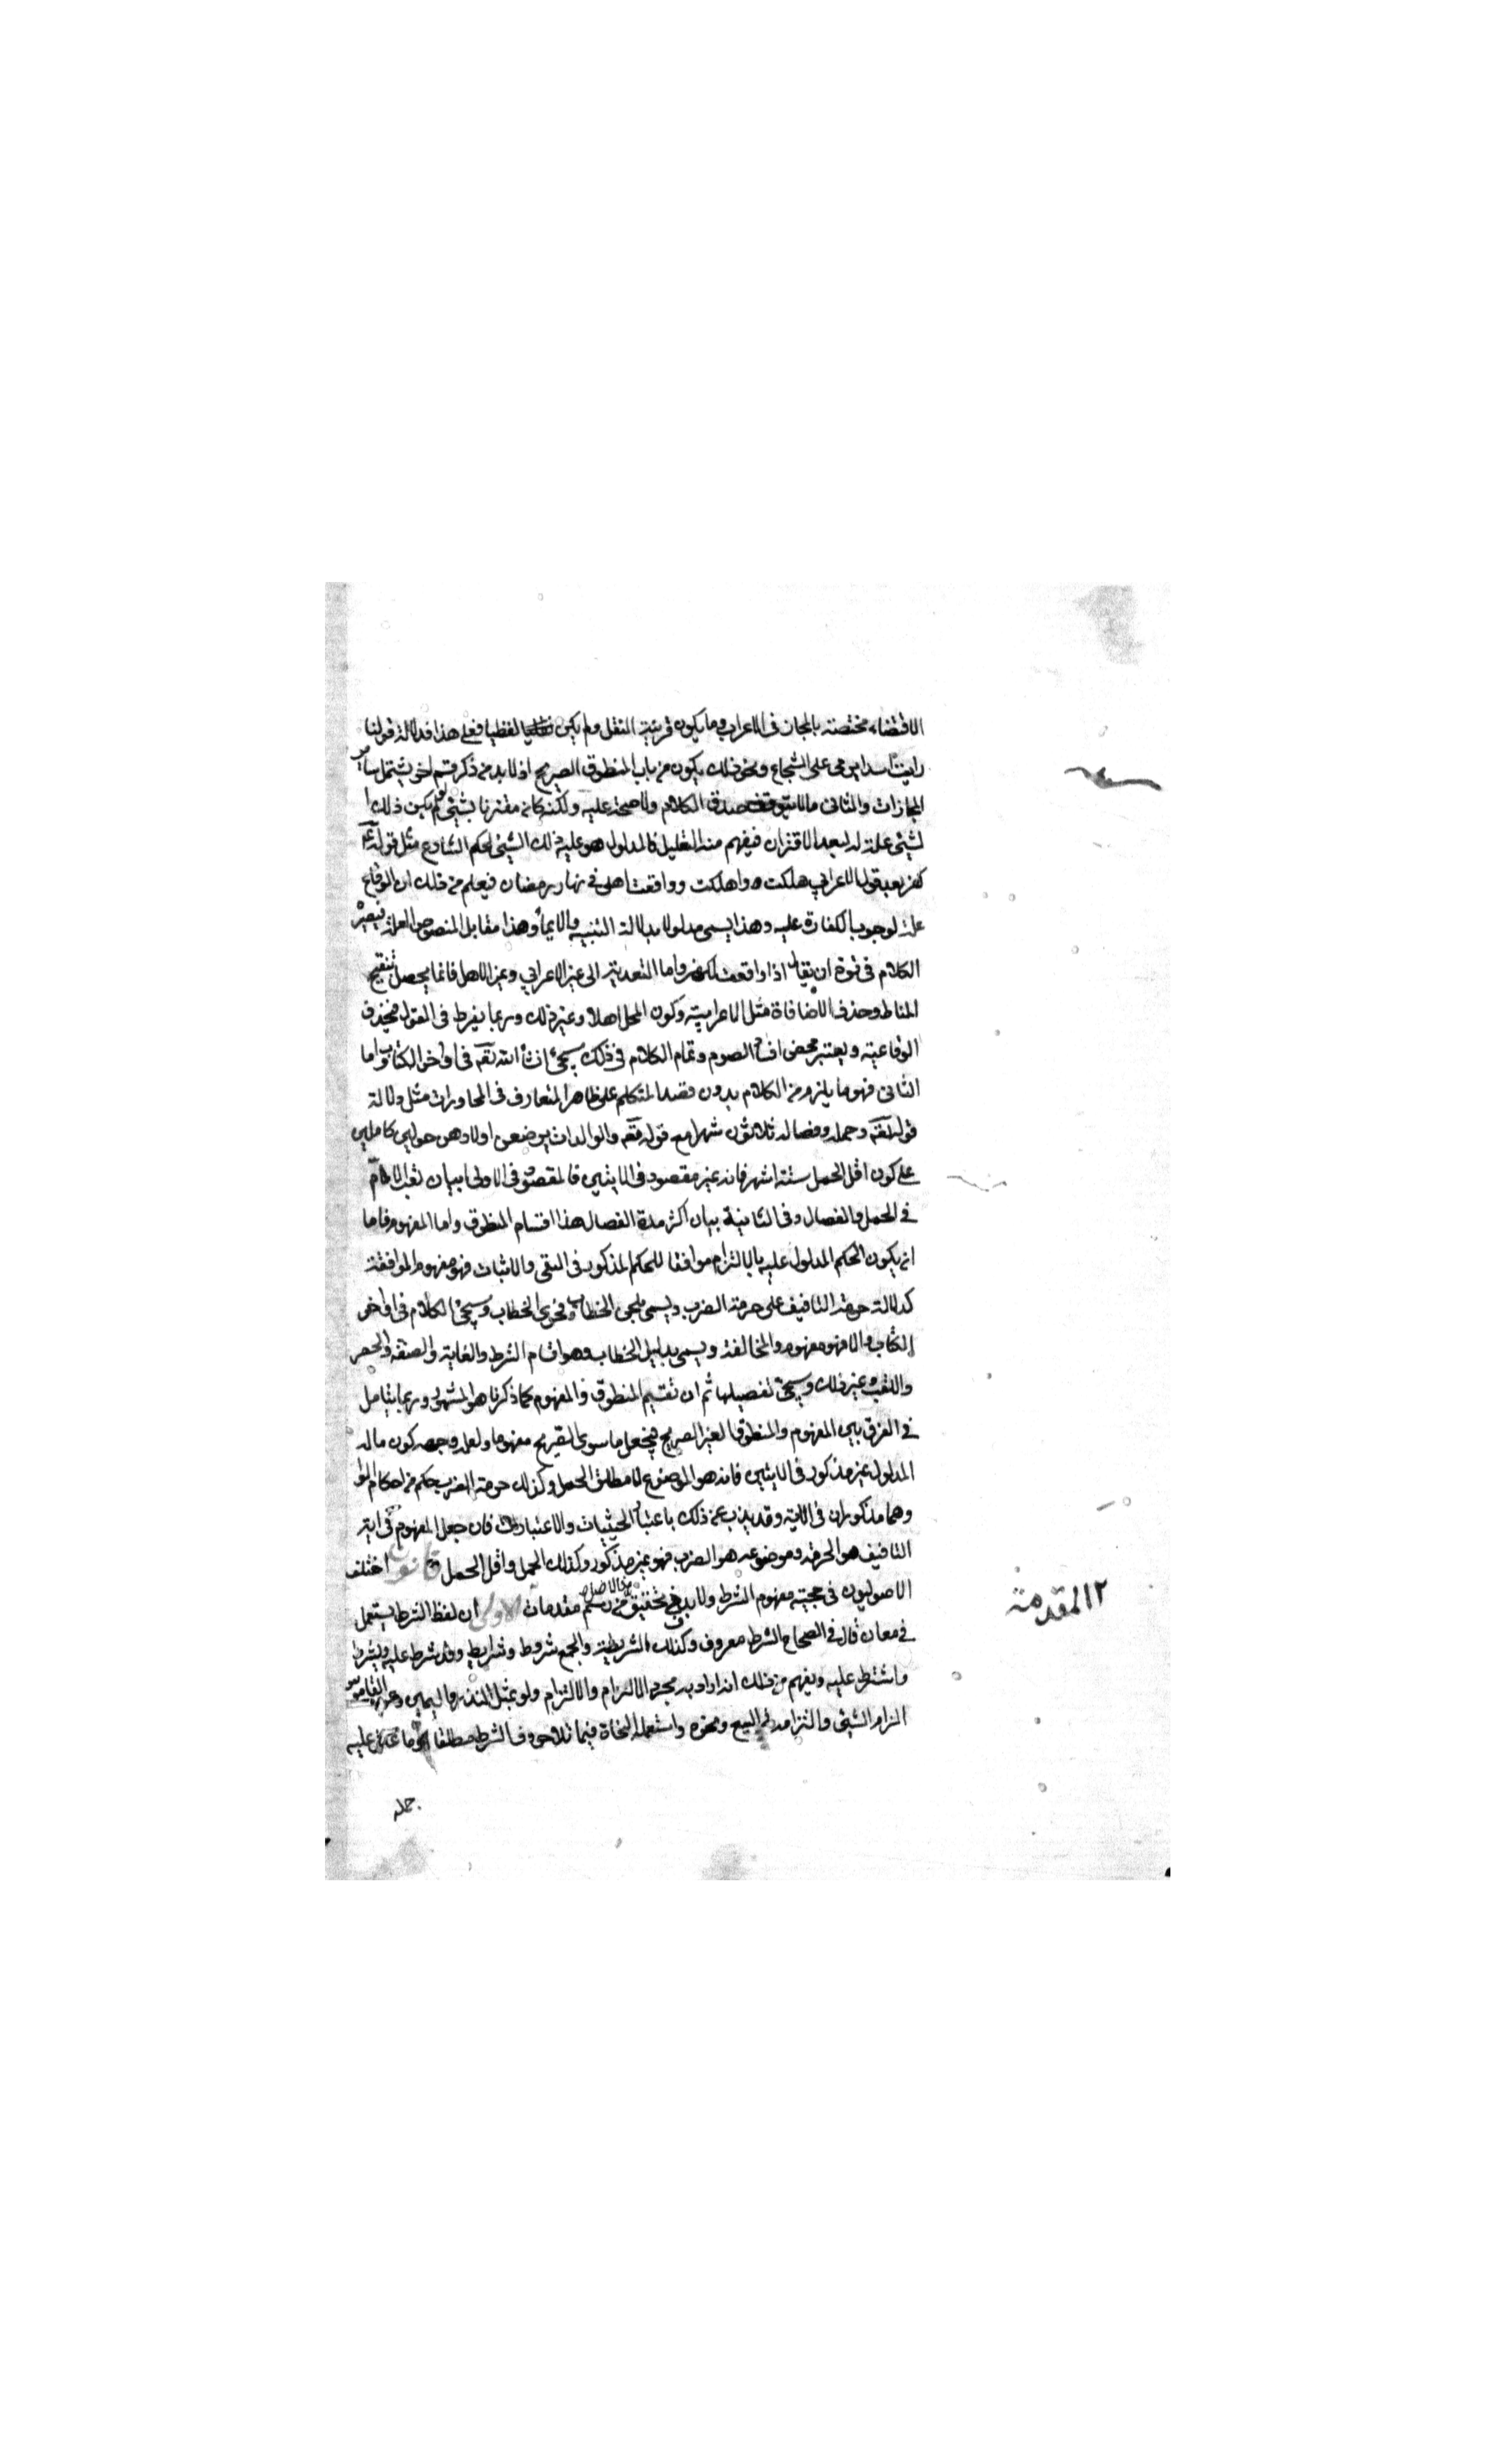 الاقتضاء مختصة بالمجاز فى الاعراب وما يكون قرينته العقل ولم يكن لفظيا فعلى هذا فدلالة قولنا
رايت اسدا يرمى على الشجاع ونحو ذلك يكون من باب المنطوق الصريح اذ لا بد من ذكر قسم اخر يشتمل ساير
المجازات والثانى ما لا يتوقف صدق الكلام ولا صحته عليه ولكنه كان مقترنا بشيئ لو لم يكن ذلك
الشيئ علة له لبعد الاقتران فيفهم منه التعليل فالمدلول هو علية ذلك الشيئ لحكم الشارع مثل قوله
كفر بعد قول الاعرابى هلكت واهلكت وواقعت اهلى فى نهار رمضان فيعلم من ذلك ان الوقاع
علة لوجوب الكفارة عليه وهذا يسمى مدلولا بدلالة التنبيه والايماء وهذا مقابل المنصوص العلة فيصير
الكلام فى قوة ان يقال اذا واقعت فكفر واما التعدية الى غير الاعرابى وغير الاهل فانما يحصل بتنقيح
المناط وحذف الاضافات مثل الاعرابية وكون المحل اهلا وغير ذلك وربما يفرط فى القول فيحذف
الوقاعية ويعتبر محض افساد الصوم وتمام الكلام فى ذلك سيجئ انشاء الله تعه فى اواخر الكتاب واما
الثانى فهو ما يلزم من الكلام بدون قصد المتكلم على ظاهر المتعارف فى المحاورات مثل دلالة
قوله تعه وحمله وفصاله ثلاثون شهرا مع قوله تعه والوالدات يرضعن اولادهن حولين كاملين
على كون اقل الحمل ستة اشهر فانه غير مقصود فى الايتين فالمقصود فى الاولى بيان تعب الام
فى الحمل والفصال وفى الثانية بيان اكثر مدة الفصال هذا اقسام المنطوق واما المفهوم فاما
ان يكون الحكم المدلول عليه بالالتزام موافقا للحكم المذكور فى النفى والاثبات فهو مفهوم الموافقة
كدلالة حرمة التافيف على حرمة الضرب ويسمى بلحن الخطاب وفحوى الخطاب وسيجئ الكلام فى اواخر
الكتاب والا فهو مفهوم المخالفة ويسمى بدليل الخطاب وهو اقسام الشرط والغاية والصفة والحصر
واللقب وغير ذلك وسيجئ تفصيلها ثم ان تقسيم المنطوق والمفهوم كما ذكرنا هو المشهور وربما يتامل
فى الفرق بين المفهوم والمنطوق الغير الصريح فيجعل ما سوى الصريح مفهوما ولعل وجهه كون ما له
المدلول غير مذكور فى الايتين فانه هو الموضوع لا مطلق الحمل وكذلك حرمة الضرب حكم من احكام
وهما مذكوران فى الاية وقد يذب عن ذلك باعتبار الحيثيات والاعتبارات فان جعل المفهوم فى اية
التافيف هو الحرمة وموضوعه هو الضرب فهو غير مذكور وكذلك الحمل واقل الحمل قانون اختلف
الاصوليون فى حجية مفهوم الشرط ولا بد فى تحقيق هذا الاصل من رسم مقدمات الاولى ان لفظ الشرط يستعمل
فى معان قال فى الصحاح الشرط معروف وكذلك الشريطة والجمع شروط وشرايط وقد شرط عليه ويشرط
واشترط عليه ويفهم من ذلك انه اراد به مجرد الالزام والالتزام ولو بمثل النذر واليمين وعن القاموس
الزام الشيئ والتزامه فى البيع ونحوه واستعمله النحاة فيما تلا حرف الشرط مطلقا او ما علق عليه
جملة
١٢ المقدمة